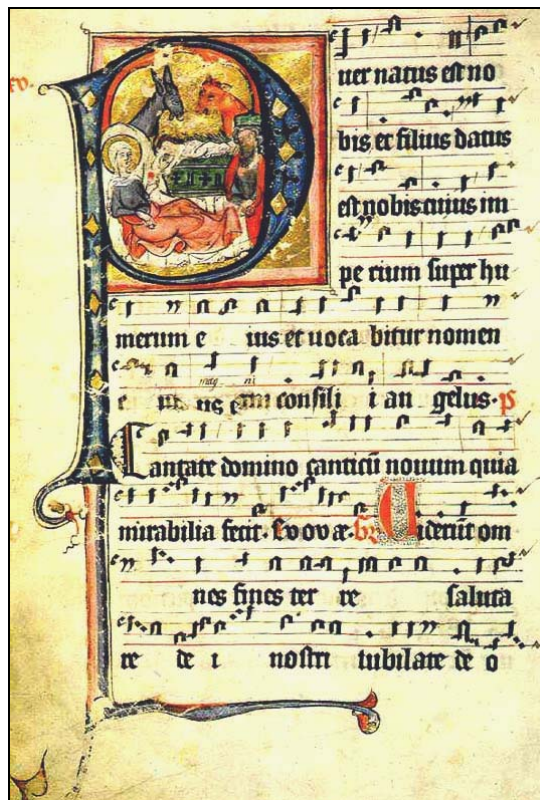 Puer natus est no
bis et filius datus
est nobis cuius im
pe rium super hu
merum e ius et uoca bitur nomen
mag ni
e ius consili i an gelus. p̄s
Cantate domino canticū nouum quia
mirabilia fecit. Evovæ. Viderūt om
nes fines ter re saluta
re de i nostri iubilate de o